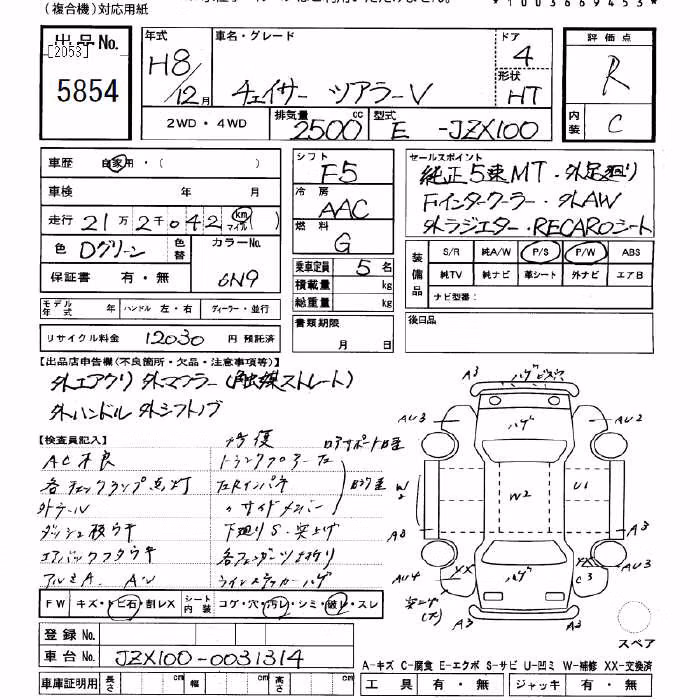 (複合機)対応用紙
*1003669453*
出品No.
[2053]
5854
年式
H8/12月
車名・グレード
チェイサー ツアラーV
ドア
4
形状
HT
2WD・4WD
排気量
2500cc
型式
E -JZX100
評価点
R
内装
C
車歴 自家用・( )
車検 年 月
走行 21万2千042 km マイル
色 Dグリーン 色替
カラーNo.
6N9
保証書 有・無
シフト
F5
冷房
AAC
燃料
G
乗車定員 5名
積載量 kg
総重量 kg
書類期限
月 日
セールスポイント
純正5速MT・外足廻り
F.インタークーラー・外AW
外ラジエター・RECAROシート
装備品
S/R 純A/W P/S P/W ABS
純TV 純ナビ 革シート 外ナビ エアB
ナビ型番:
モデル年式 年 ハンドル 左・右 ディーラー・並行
リサイクル料金 12030 円 預託済
後日品
【出品店申告欄(不良箇所・欠品・注意事項等)】
外エアクリ 外マフラー(触媒ストレート)
外ハンドル 外シフトノブ
【検査員記入】
修復
AC不良
各チェックランプ点灯
外テール
ダッシュ板ウキ
エアバックフタウキ
下廻りS・突上げ
ラインステッカーハゲ
A3
ハゲ
AU3
AU2
W2
U1
A3
AU4
XX
C3
A3
FW キズ・トビ石・割レX
シート内装 コゲ・穴・汚レ・シミ・破レ・スレ
登録No.
車台No. JZX100-0031314
車庫証明用 長さ cm 幅 cm 高さ cm
スペア
A-キズ C-腐食 E-エクボ S-サビ U-凹ミ W-補修 XX-交換済
工具 有・無 ジャッキ 有・無